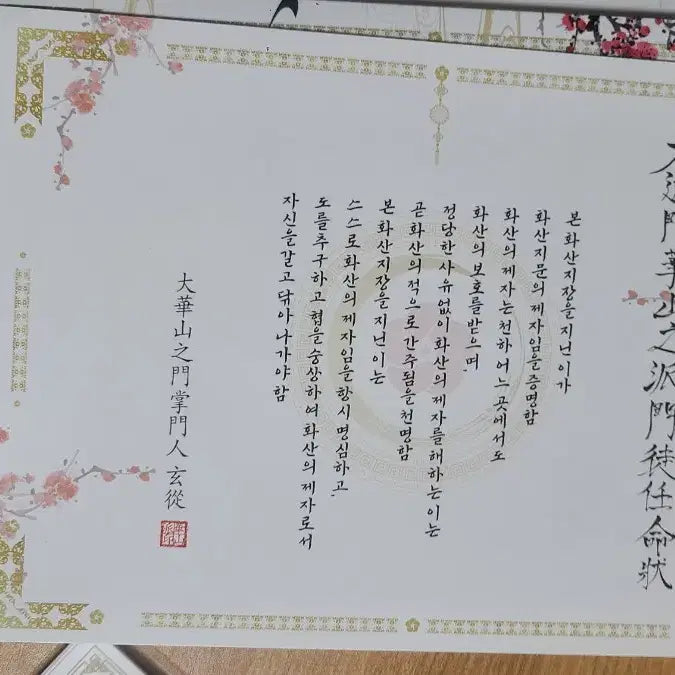 門華山之派門徒任命狀
본 화산지장을 지닌 이가
화산지문의 제자임을 증명함
화산의 제자는 천하 어느 곳에서도
화산의 보호를 받으며,
정당한 사유 없이 화산의 제자를 해하는 이는
곧 화산의 적으로 간주됨을 천명함
본 화산지장을 지닌 이는
스스로 화산의 제자임을 항시 명심하고,
도를 추구하고 협을 숭상하여 화산의 제자로서
자신을 갈고 닦아 나가야 함
大華山之門掌門人 玄從